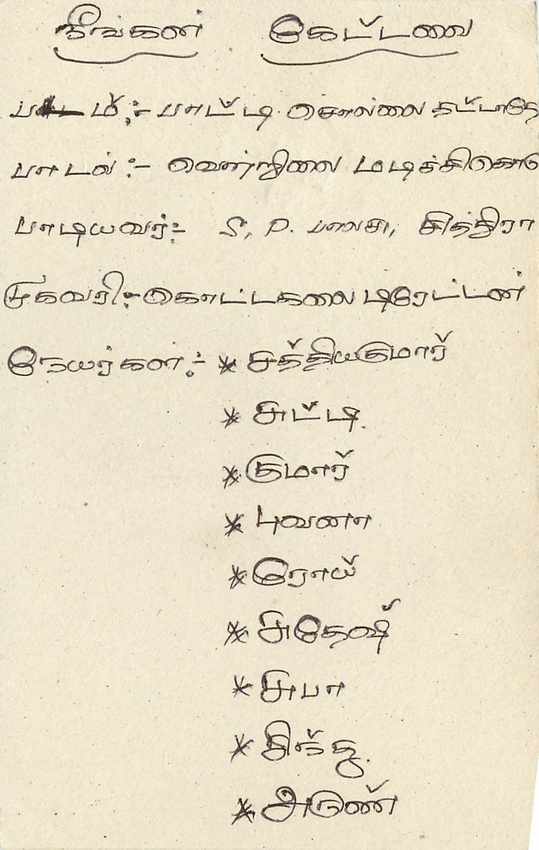 நீங்கள் கேட்டவை
படம்:- பாட்டி சொல்லை தட்டாதே
பாடல்:- வெற்றிலை மடிச்சிகொடு
பாடியவர்:- S, P. பலசு, சித்திரா
முகவரி:- கொட்டகலை டிரேட்டன்
நேயர்கள்:- * சத்தியகுமார்
* சுட்டி.
* குமார்
* புவனா
* ரோய்
* சுதேஷ்
* சுபா
* அருண்